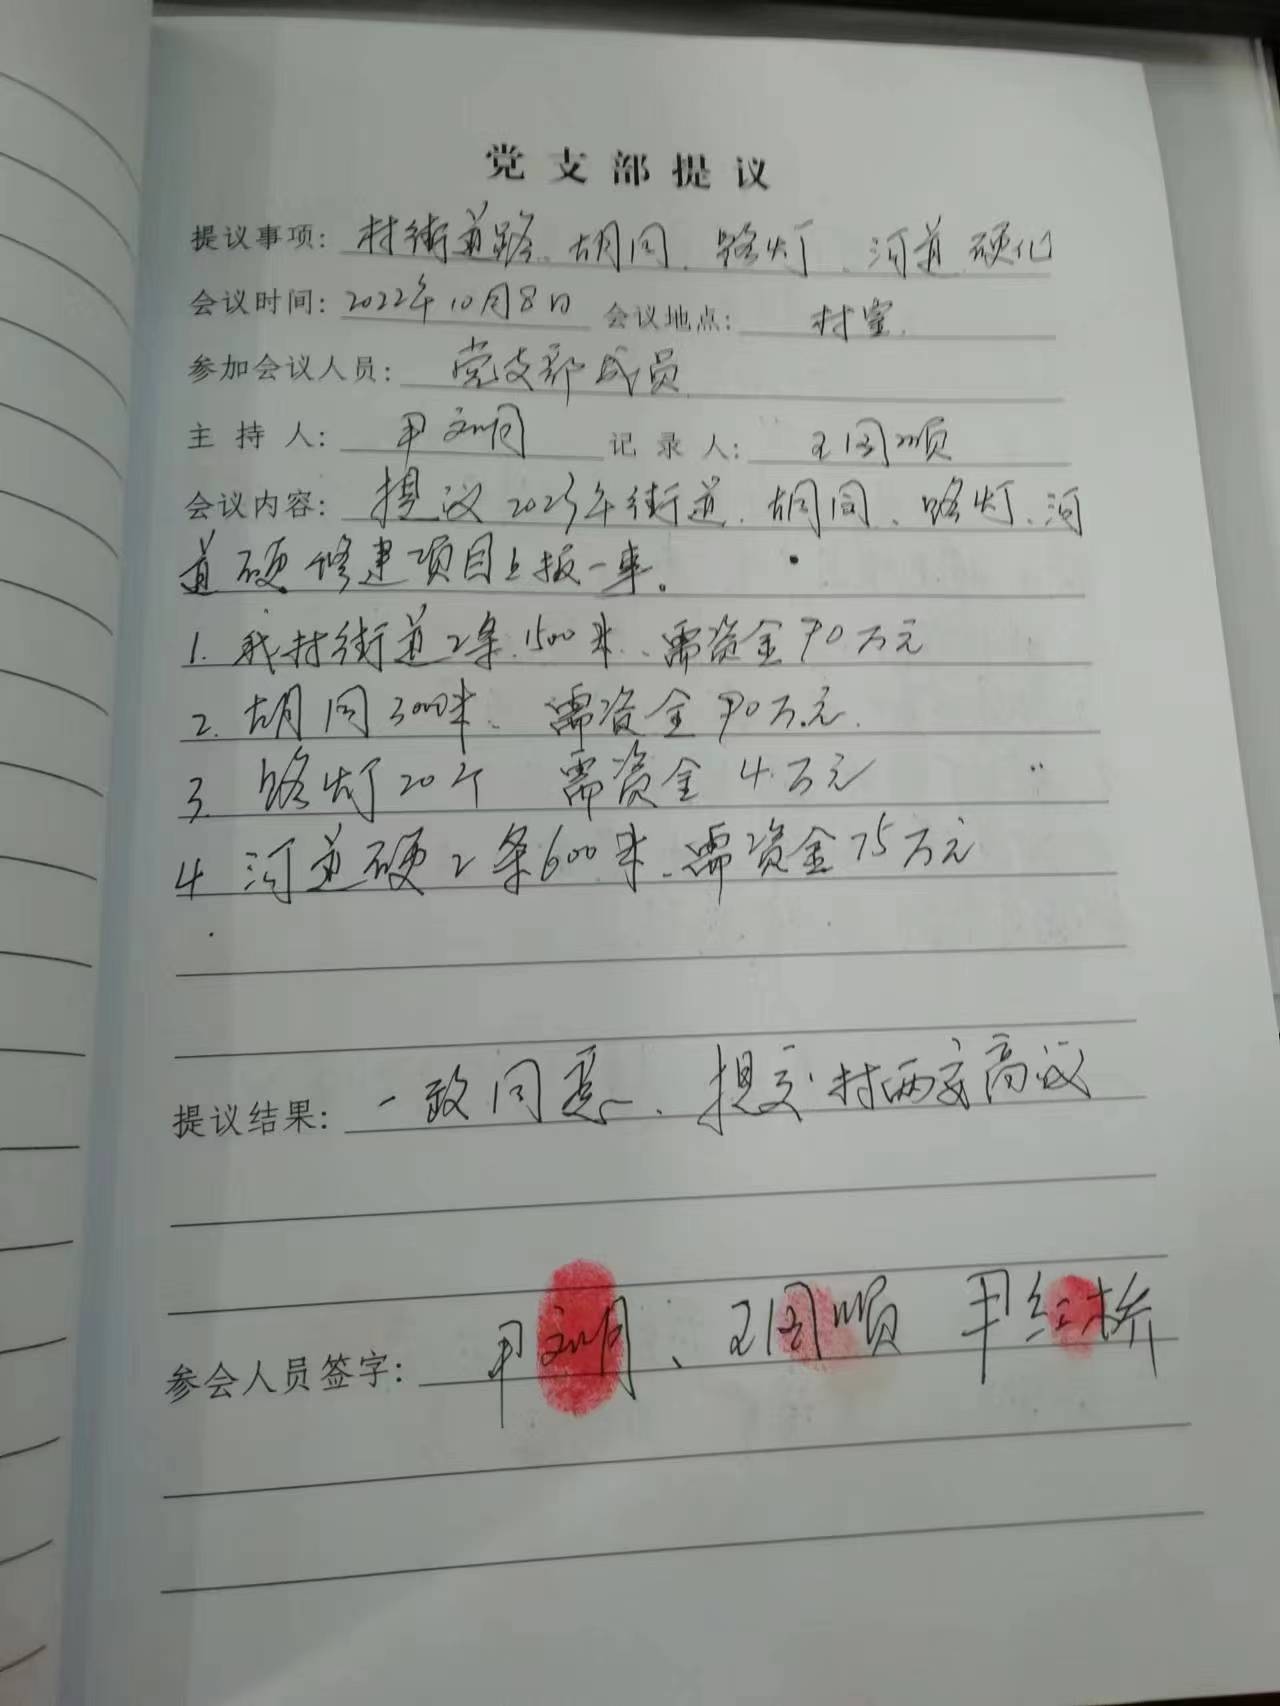 党支部提议
提议事项: 村街道路、胡同、路灯、河道硬化
会议时间: 2022年10月8日 会议地点: 村室.
参加会议人员: 党支部成员
主持人: 尹文同 记录人: 王国顺
会议内容: 提议2023年街道、胡同、路灯、河
道硬修建项目上报一事。
1. 我村街道2条.1500米、需资金90万元
2. 胡同3000米、需资金90万元.
3. 路灯20个 需资金4万元
4 河道硬2条600米、需资金75万元
提议结果: 一致同意、提交村两委商议
参会人员签字: 尹文同、王国顺 尹红桥